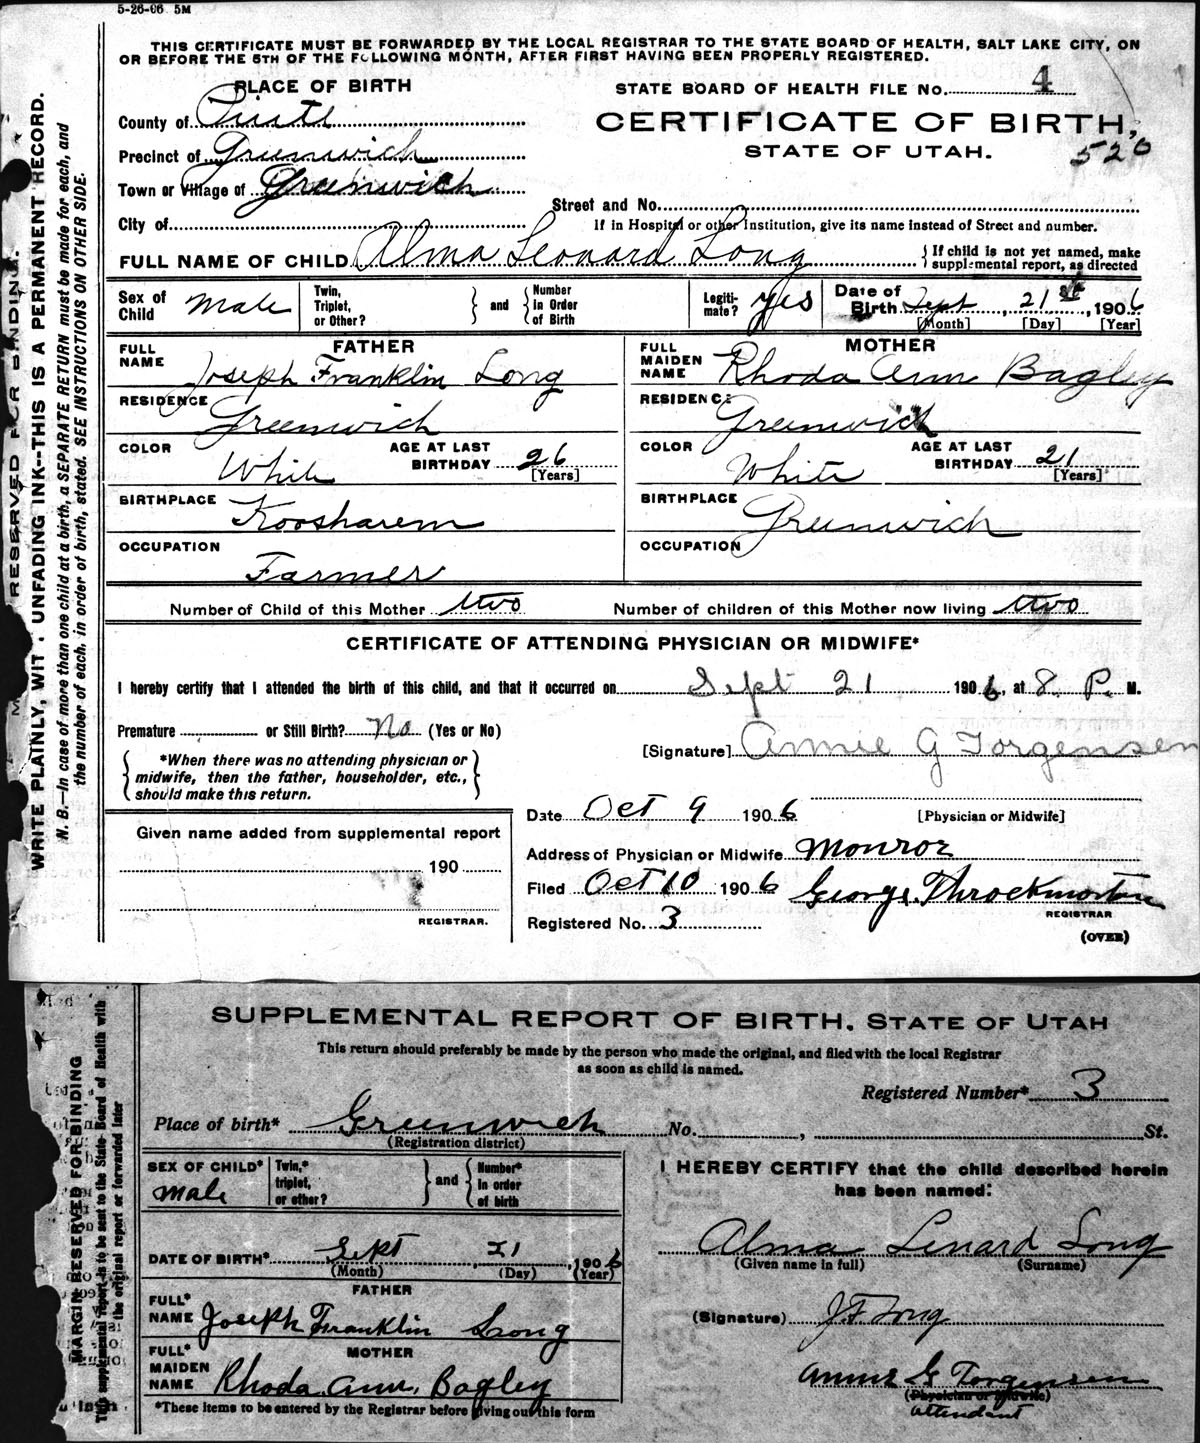 5-26-06 5M
THIS CERTIFICATE MUST BE FORWARDED BY THE LOCAL REGISTRAR TO THE STATE BOARD OF HEALTH, SALT LAKE CITY, ON
OR BEFORE THE 5TH OF THE FOLLOWING MONTH, AFTER FIRST HAVING BEEN PROPERLY REGISTERED.
PLACE OF BIRTH
STATE BOARD OF HEALTH FILE No. 4
County of Piute
CERTIFICATE OF BIRTH,
520
Precinct of Greenwich
STATE OF UTAH.
Town or Village of Greenwich
Street and No.
City of
If in Hospital or other Institution, give its name instead of Street and number.
FULL NAME OF CHILD Alma Leonard Long
If child is not yet named, make
supplemental report, as directed
Sex of Child Male
Twin, Triplet, or Other?
and
Number in Order of Birth
Legitimate? yes
Date of Birth Sept, 21st, 1906
[Month] [Day] [Year]
FATHER
FULL NAME Joseph Franklin Long
RESIDENCE Greenwich
COLOR White
AGE AT LAST BIRTHDAY 26 [Years]
BIRTHPLACE Koosharem
OCCUPATION Farmer
MOTHER
FULL MAIDEN NAME Rhoda Ann Bagley
RESIDENCE Greenwich
COLOR White
AGE AT LAST BIRTHDAY 21 [Years]
BIRTHPLACE Greenwich
OCCUPATION
Number of Child of this Mother two
Number of children of this Mother now living two
CERTIFICATE OF ATTENDING PHYSICIAN OR MIDWIFE*
I hereby certify that I attended the birth of this child, and that it occurred on Sept 21 1906, at 8 P. M.
Premature or Still Birth? No (Yes or No)
[Signature] Annie G Torgensen
*When there was no attending physician or
midwife, then the father, householder, etc.,
should make this return.
Date Oct 9 1906
[Physician or Midwife]
Given name added from supplemental report
190
REGISTRAR.
Address of Physician or Midwife Monroe
Filed Oct 10 1906 George Throckmorton
REGISTRAR
Registered No. 3
(OVER)
RESERVED FOR BINDING.
WRITE PLAINLY, WIT UNFADING INK--THIS IS A PERMANENT RECORD.
N. B.—In case of more than one child at a birth, a SEPARATE RETURN must be made for each, and
the number of each, in order of birth, stated. SEE INSTRUCTIONS ON OTHER SIDE.
SUPPLEMENTAL REPORT OF BIRTH. STATE OF UTAH
This return should preferably be made by the person who made the original, and filed with the local Registrar
as soon as child is named.
Registered Number* 3
Place of birth* Greenwich No. , St.
(Registration district)
SEX OF CHILD* Male
Twin,* triplet, or other?
and
Number* in order of birth
I HEREBY CERTIFY that the child described herein
has been named:
Alma Lenard Long
(Given name in full) (Surname)
DATE OF BIRTH* Sept, 21, 1906
(Month) (Day) (Year)
FATHER
FULL* NAME Joseph Franklin Long
(Signature) J.F Long
MOTHER
FULL* MAIDEN NAME Rhoda Ann. Bagley
Annie G Torgensen
(Physician or Midwife)
attendant
*These items to be entered by the Registrar before giving out this form
MARGIN RESERVED FOR BINDING
This supplemental report is to be sent to the State Board of Health with
the original report or forwarded later